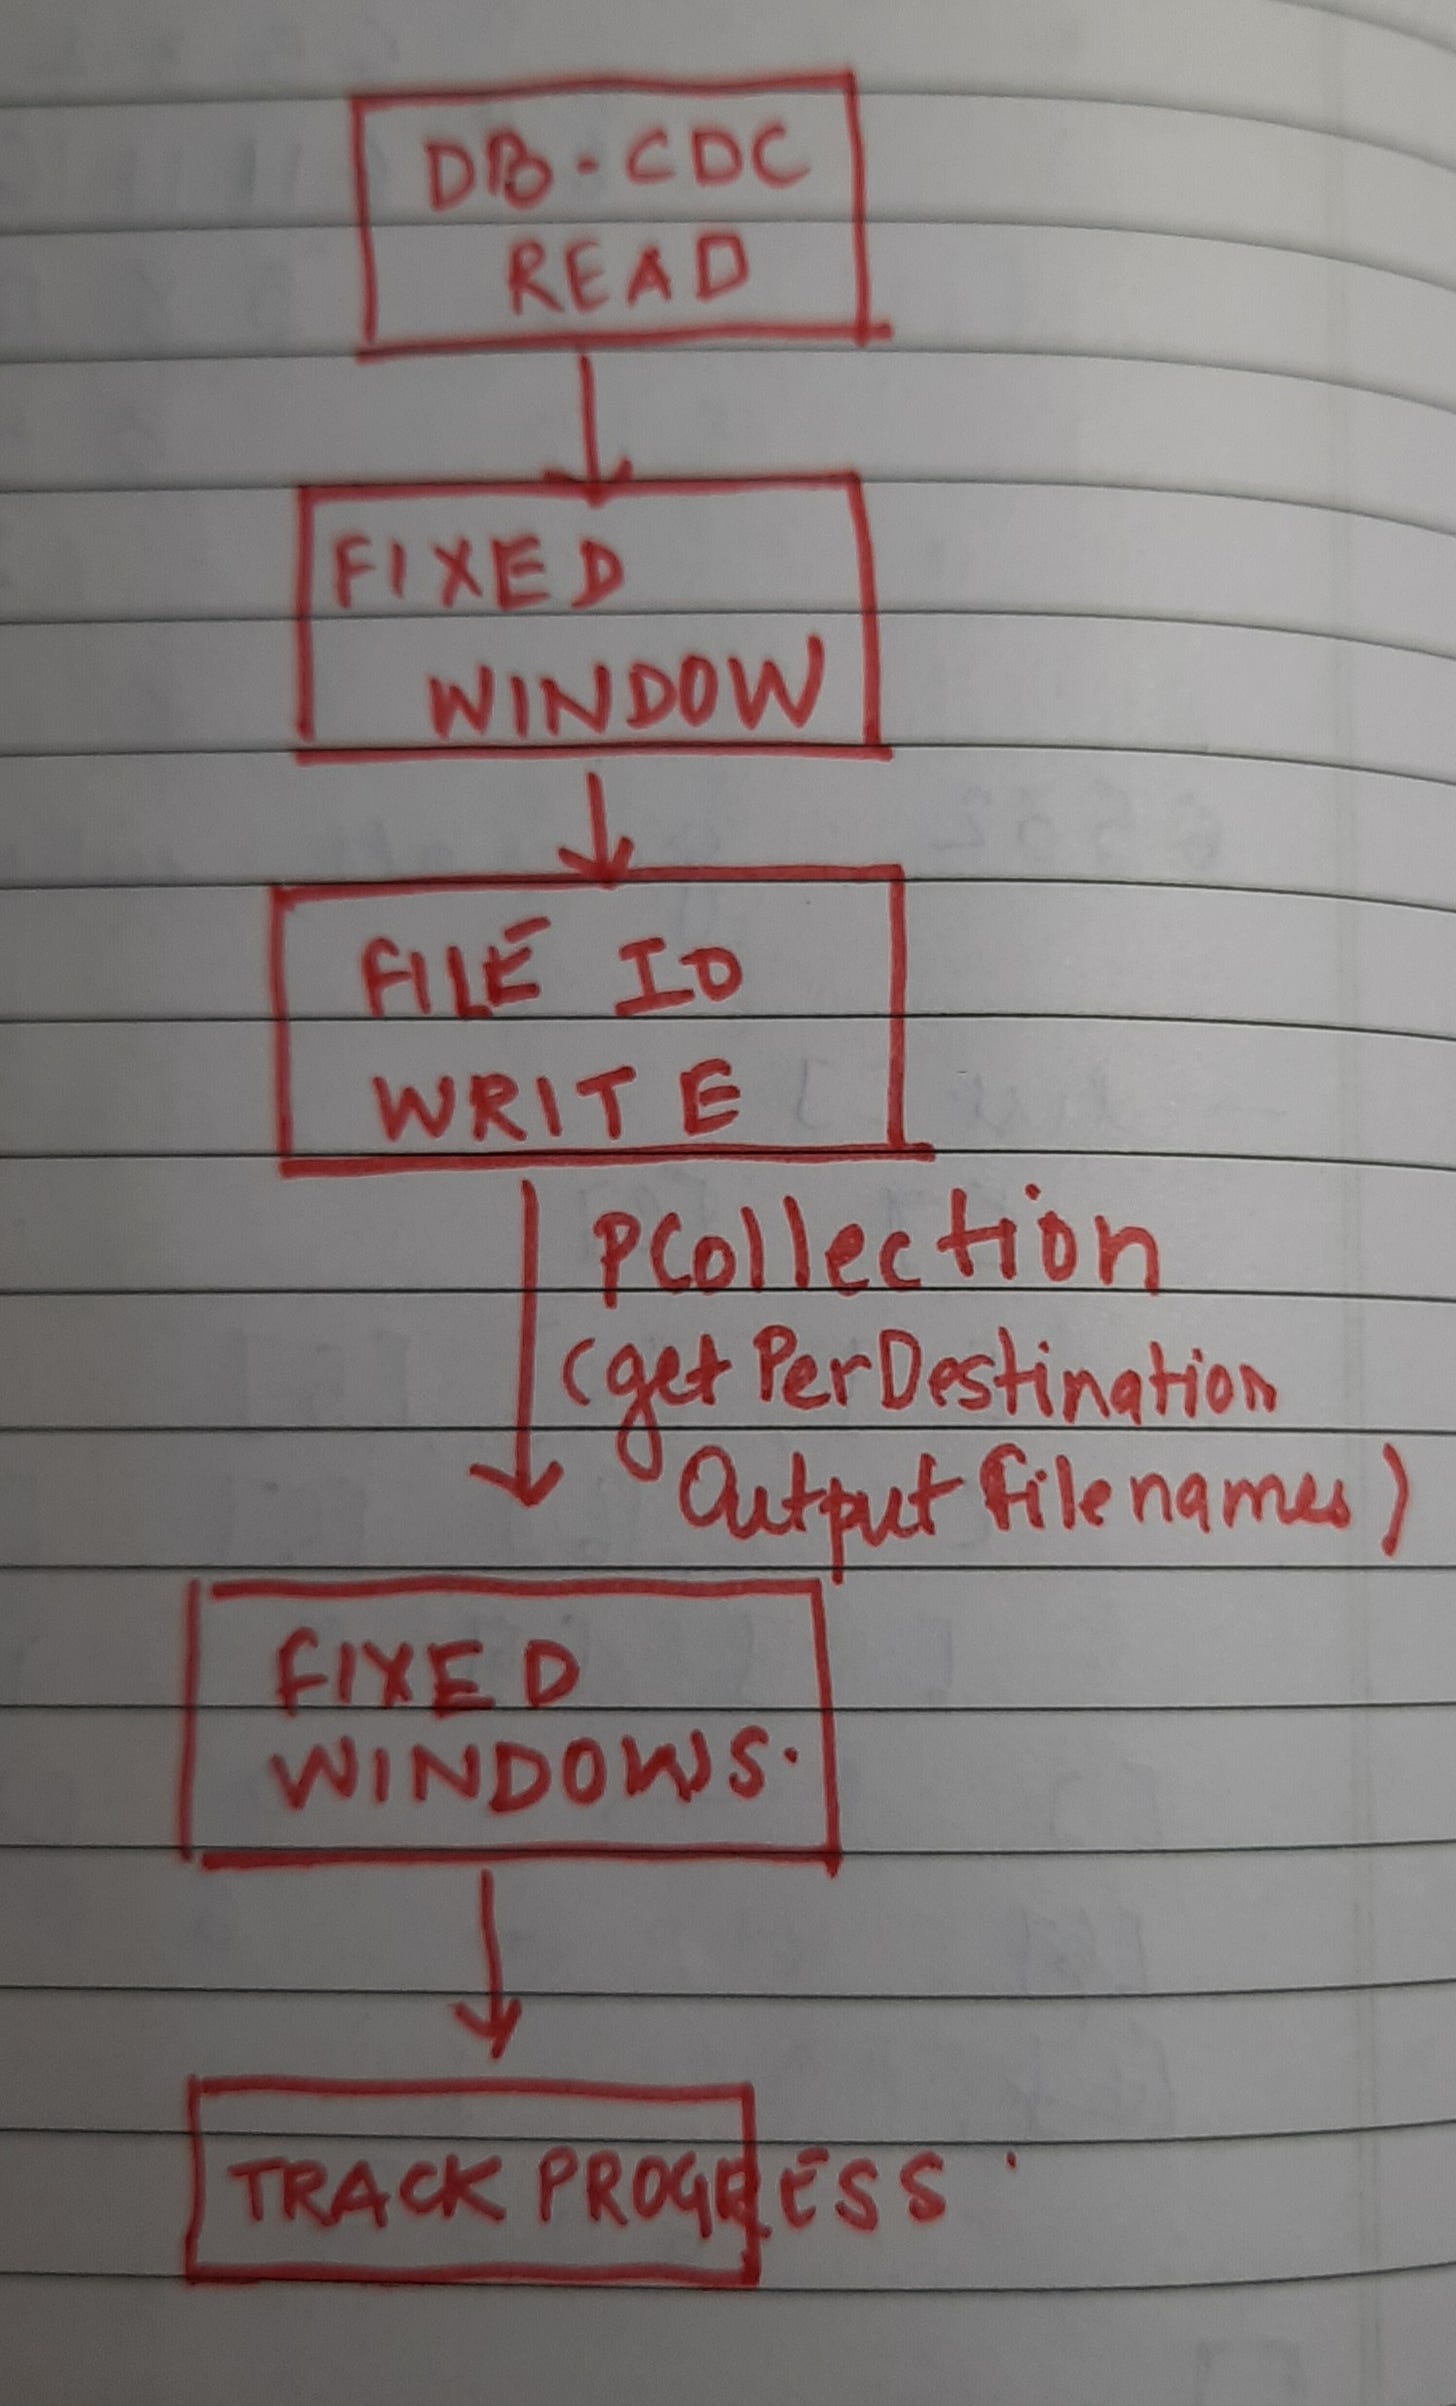 DB-CDC
READ
FIXED
WINDOW
FILE IO
WRITE
PCollection
(getPerDestination
Output filenames)
FIXED
WINDOWS.
TRACK PROGRESS